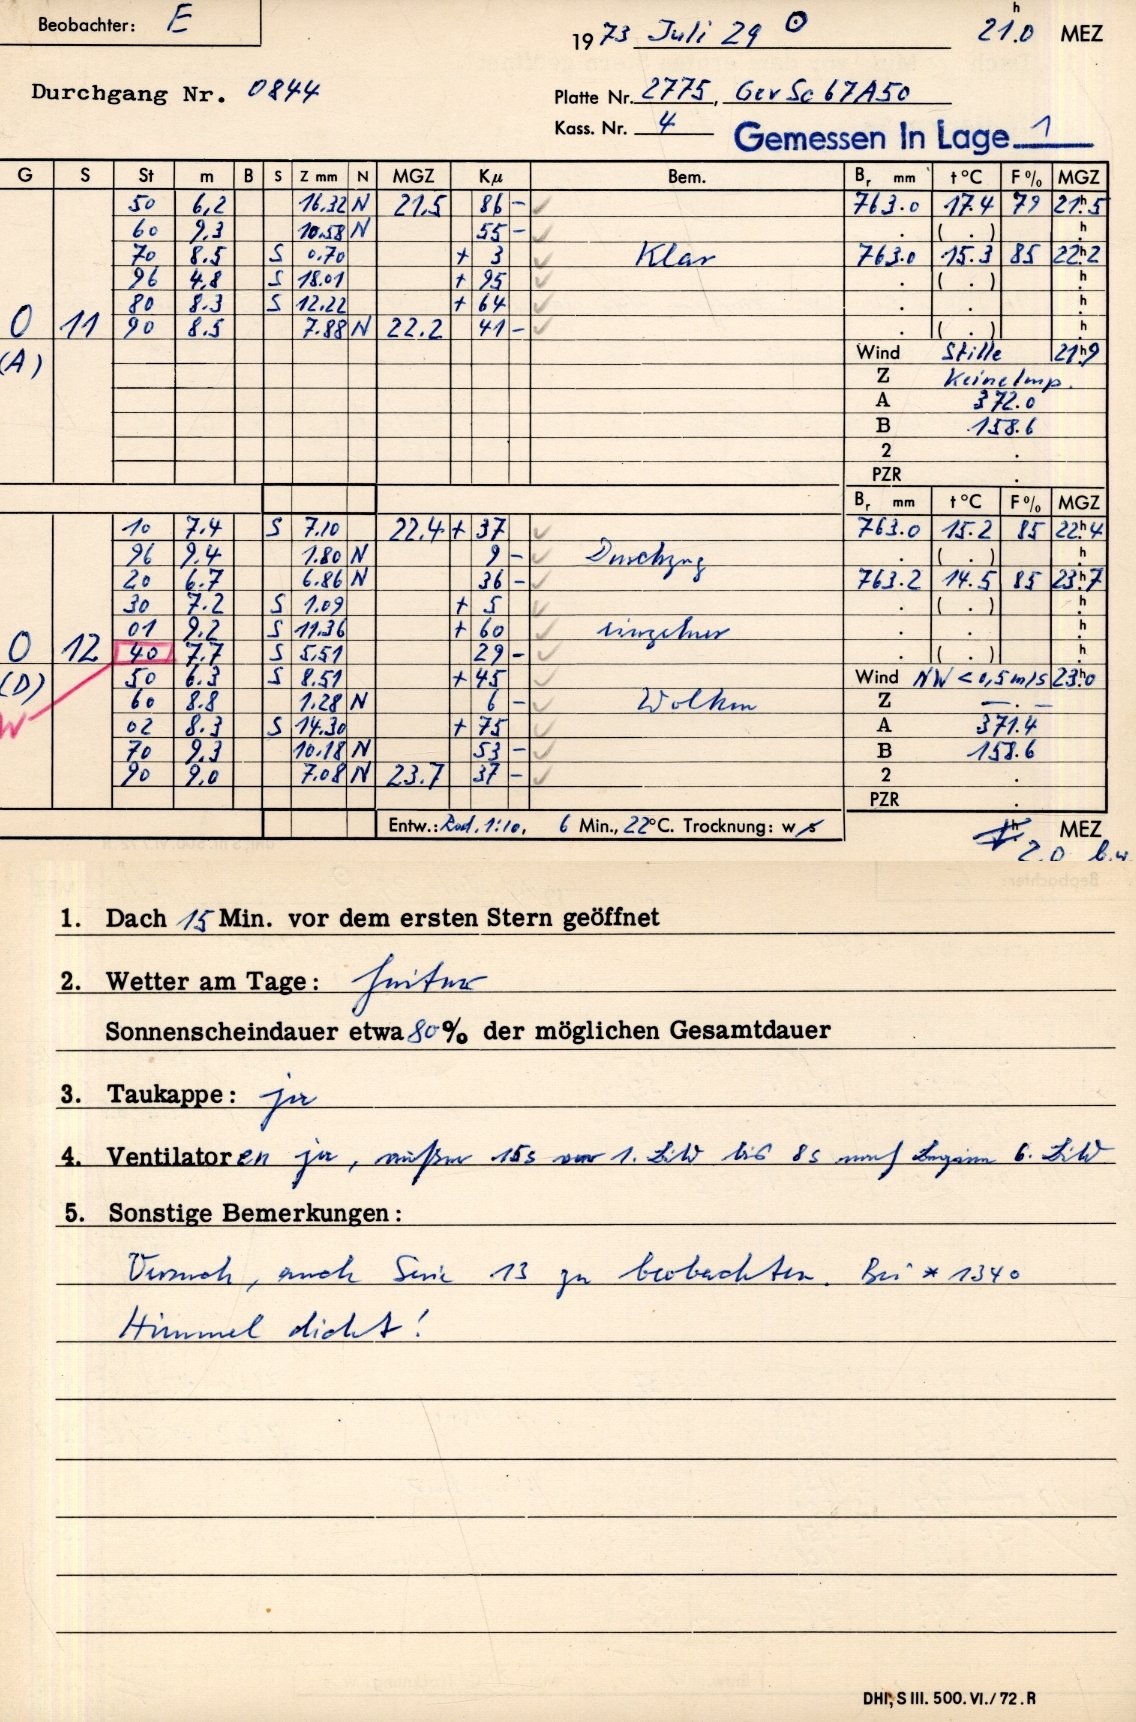 Beobachter: E
1973 Juli 29 ⊙ 21.0 h MEZ
Durchgang Nr. 0844
Platte Nr. 2775, Gev Sc 67A50
Kass. Nr. 4 Gemessen In Lage 1
G S St m B S Z mm N MGZ Kμ Bem. Br mm t °C F % MGZ
50 6,2 16.32 N 21.5 86 - ✓ 763.0 17.4 79 21h5
60 9.3 10.58 N 55 - ✓ . ( . ) h
70 8.5 S 0.70 + 3 ✓ Klar 763.0 15.3 85 22h2
96 4.8 S 18.01 + 95 ✓ . ( . ) h
80 8.3 S 12.22 + 64 ✓ . . h
O 11 90 8.5 7.88 N 22.2 41 - ✓ . ( . ) h
(A) Wind Stille 21h9
Z Keine Imp.
A 372.0
B 158.6
2 .
PZR .
Br mm t °C F % MGZ
10 7.4 S 7.10 22.4 + 37 ✓ 763.0 15.2 85 22h4
96 9.4 1.80 N 9 - ✓ Durchzug . ( . ) h
20 6.7 6.86 N 36 - ✓ 763.2 14.5 85 23h7
30 7.2 S 1.09 + 5 ✓ . ( . ) h
01 9.2 S 11.36 + 60 ✓ einzelner . . h
O 12 40 7.7 S 5.51 29 - ✓ . ( . ) h
(D) 50 6.3 S 8.51 + 45 ✓ Wind NW < 0,5 m/s 23h0
W 60 8.8 1.28 N 6 - ✓ Wolken Z — . —
02 8.3 S 14.30 + 75 ✓ A 371.4
70 9.3 10.18 N 53 - ✓ B 158.6
90 9.0 7.08 N 23.7 37 - ✓ 2 .
PZR .
Entw.: Rod. 1:10, 6 Min., 22°C. Trocknung: w s
h MEZ
2.0 b.w.
1. Dach 15 Min. vor dem ersten Stern geöffnet
2. Wetter am Tage: heiter
Sonnenscheindauer etwa 80 % der möglichen Gesamtdauer
3. Taukappe: ja
4. Ventilatoren ja, außer 15s vor 1. Bild bis 8s nach Beginn 6. Bild
5. Sonstige Bemerkungen:
Versuch, auch Serie 13 zu beobachten. Bei * 1340
Himmel dicht!
DHI, S III. 500. VI./72. R